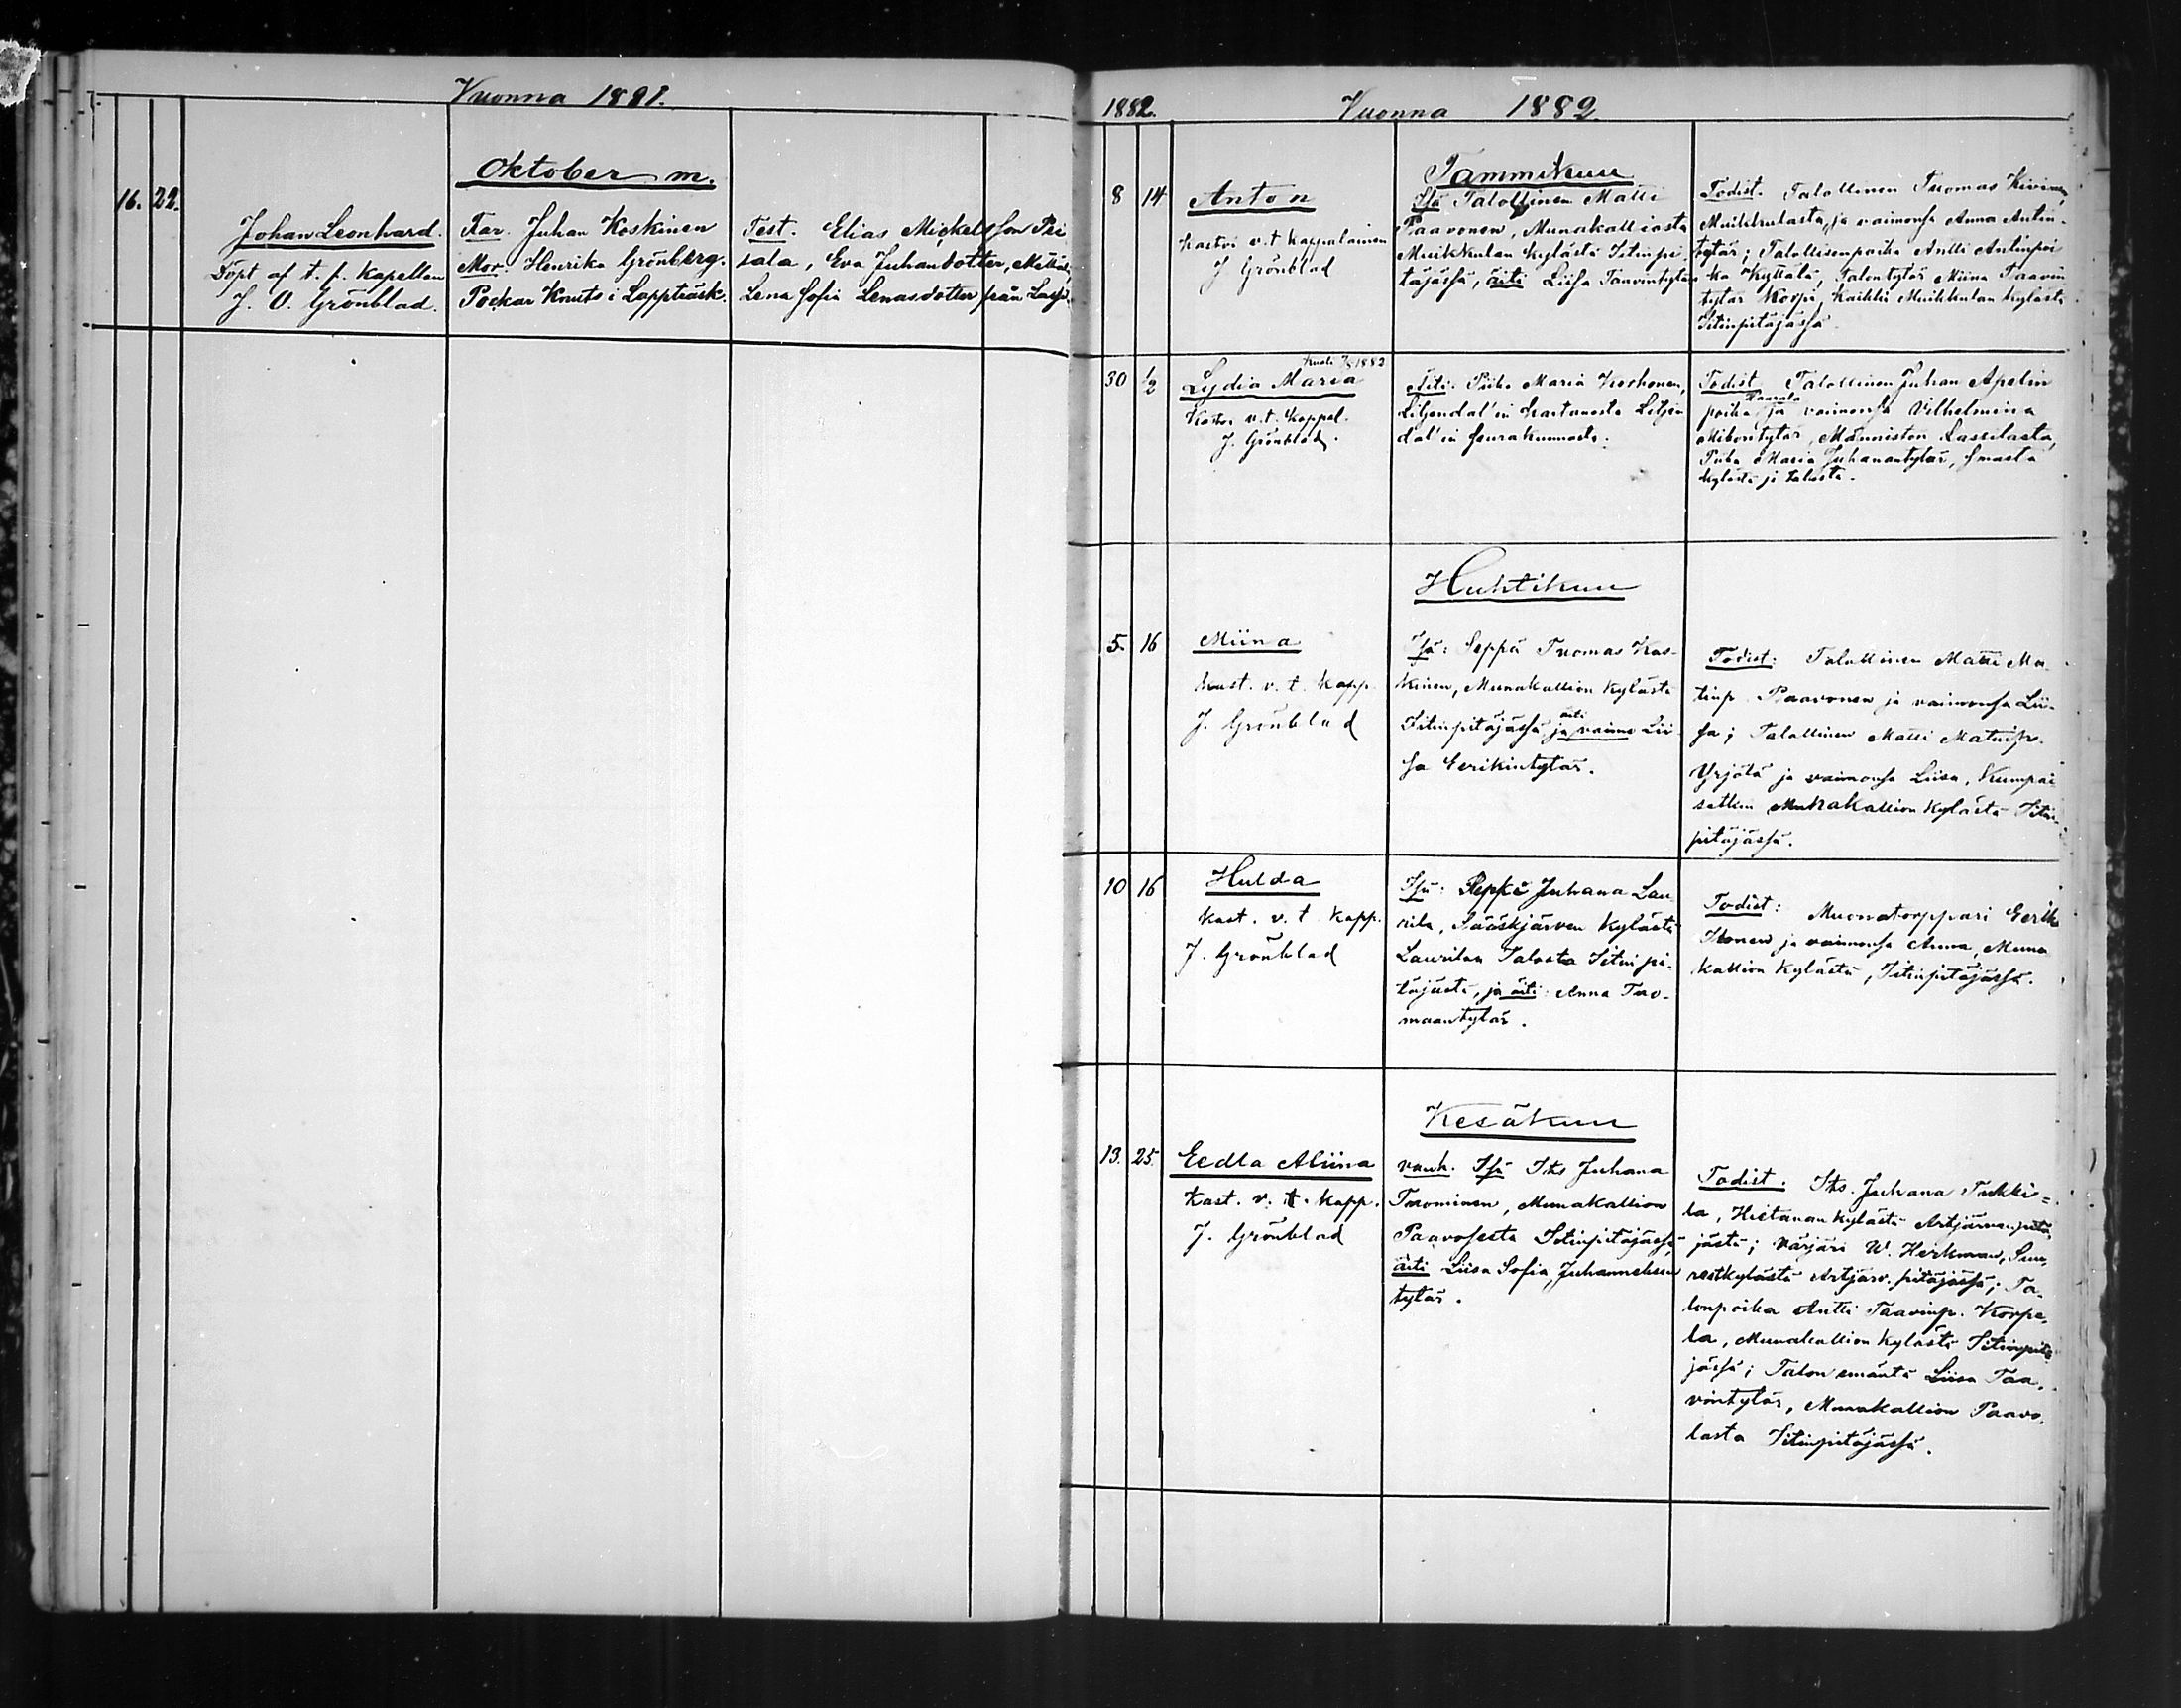 Vuonna 1881.
Oktober m.
16. 22.
Johan Leonhard.
Döpt af t. f. Kapellan
J. O. Grönblad.
Far. Juhan Koskinen
Mor. Henrika Grönberg.
Pockar Knuts i Lappträsk.
Test. Elias Mickelsson
sala, Eva Juhansdotter,
Lena Sofia Lenasdotter från
1882. Vuonna 1882.
Tammikuu
8 14
Anton
Kastoi v.t. kappalainen
J Grönblad
Isä Talollinen Matti
Paavonen, Munakalliosta
Muikkulan kylästä Iitinpi
täjässä, äiti Liisa Taavintytär
Todist. Talollinen Tuomas Kivinen,
Muikkulasta, ja vaimonsa Anna Antin-
tytär; Talollisenpoika Antti Antinpoi
ka Kyttälä, Talontytär Miina Taavin
tytär Korpi, kaikki Muikkulan kylästä
Iitinpitäjässä.
30 1/2
kuoli 1882
Lydia Maria
Kastoi v.t. kappal.
J. Grönblad.
Äiti: Piika Maria Korhonen,
Liljendal'in kartanosta Liljen
dal'in seurakunnasta.
Todist. Talollinen Juhan Apelin
poika ja vaimonsa Vilhelmina
tytär, Männistön Lassilasta,
Piika Maria Juhanantytär, samasta
kylästä ja talosta.
Huhtikuu
5. 16
Miina
kast. v. t. kapp.
J. Grönblad
Isä: Seppä Tuomas Kos-
kinen, Munakallion kylästä
äiti
Iitinpitäjässä ja vaimo Lii-
sa Eerikintytär.
Todist: Talollinen Matti Ma-
tinp. Paavonen ja vaimonsa Lii-
sa; Talollinen Matti Matinp.
Yrjölä ja vaimonsa Liisa, Kumpai
setkin Munakallion kylästä Iitin-
pitäjässä.
10 16
Hulda
kast. v. t. kapp.
J. Grönblad
Isä: Juhana Lau
rila, Sääskjärven kylästä
Laurilan Talosta Iitin pi-
täjästä, ja äiti: Anna Tuo-
maantytär.
Todist: Muonatorppari Eerik
Iltonen ja vaimonsa Anna, Muna
kallion kylästä, Iitinpitäjässä.
Kesäkuu
13. 25.
Eedla Aliina
Kast. v. t. kapp.
J. Grönblad
vanh. Isä Its Juhana
Tuominen, Munakallion
Paavolasta Iitinpitäjässä,
äiti Liisa Sofia Juhanneksen
tytär.
Todist. Its. Juhana Tukki=
la, Hietanan kylästä Artjärvenpitä
jästä; värjäri W. Herkman,
kylästä Artjärv. pitäjässä; Ta-
lonpoika Antti Taavinp. Korpe-
la, Munakallion kylästä Iitinpitä
jässä; Talon emäntä Liisa Taa-
vintytär, Munakallion Paavo-
lasta Iitinpitäjässä.